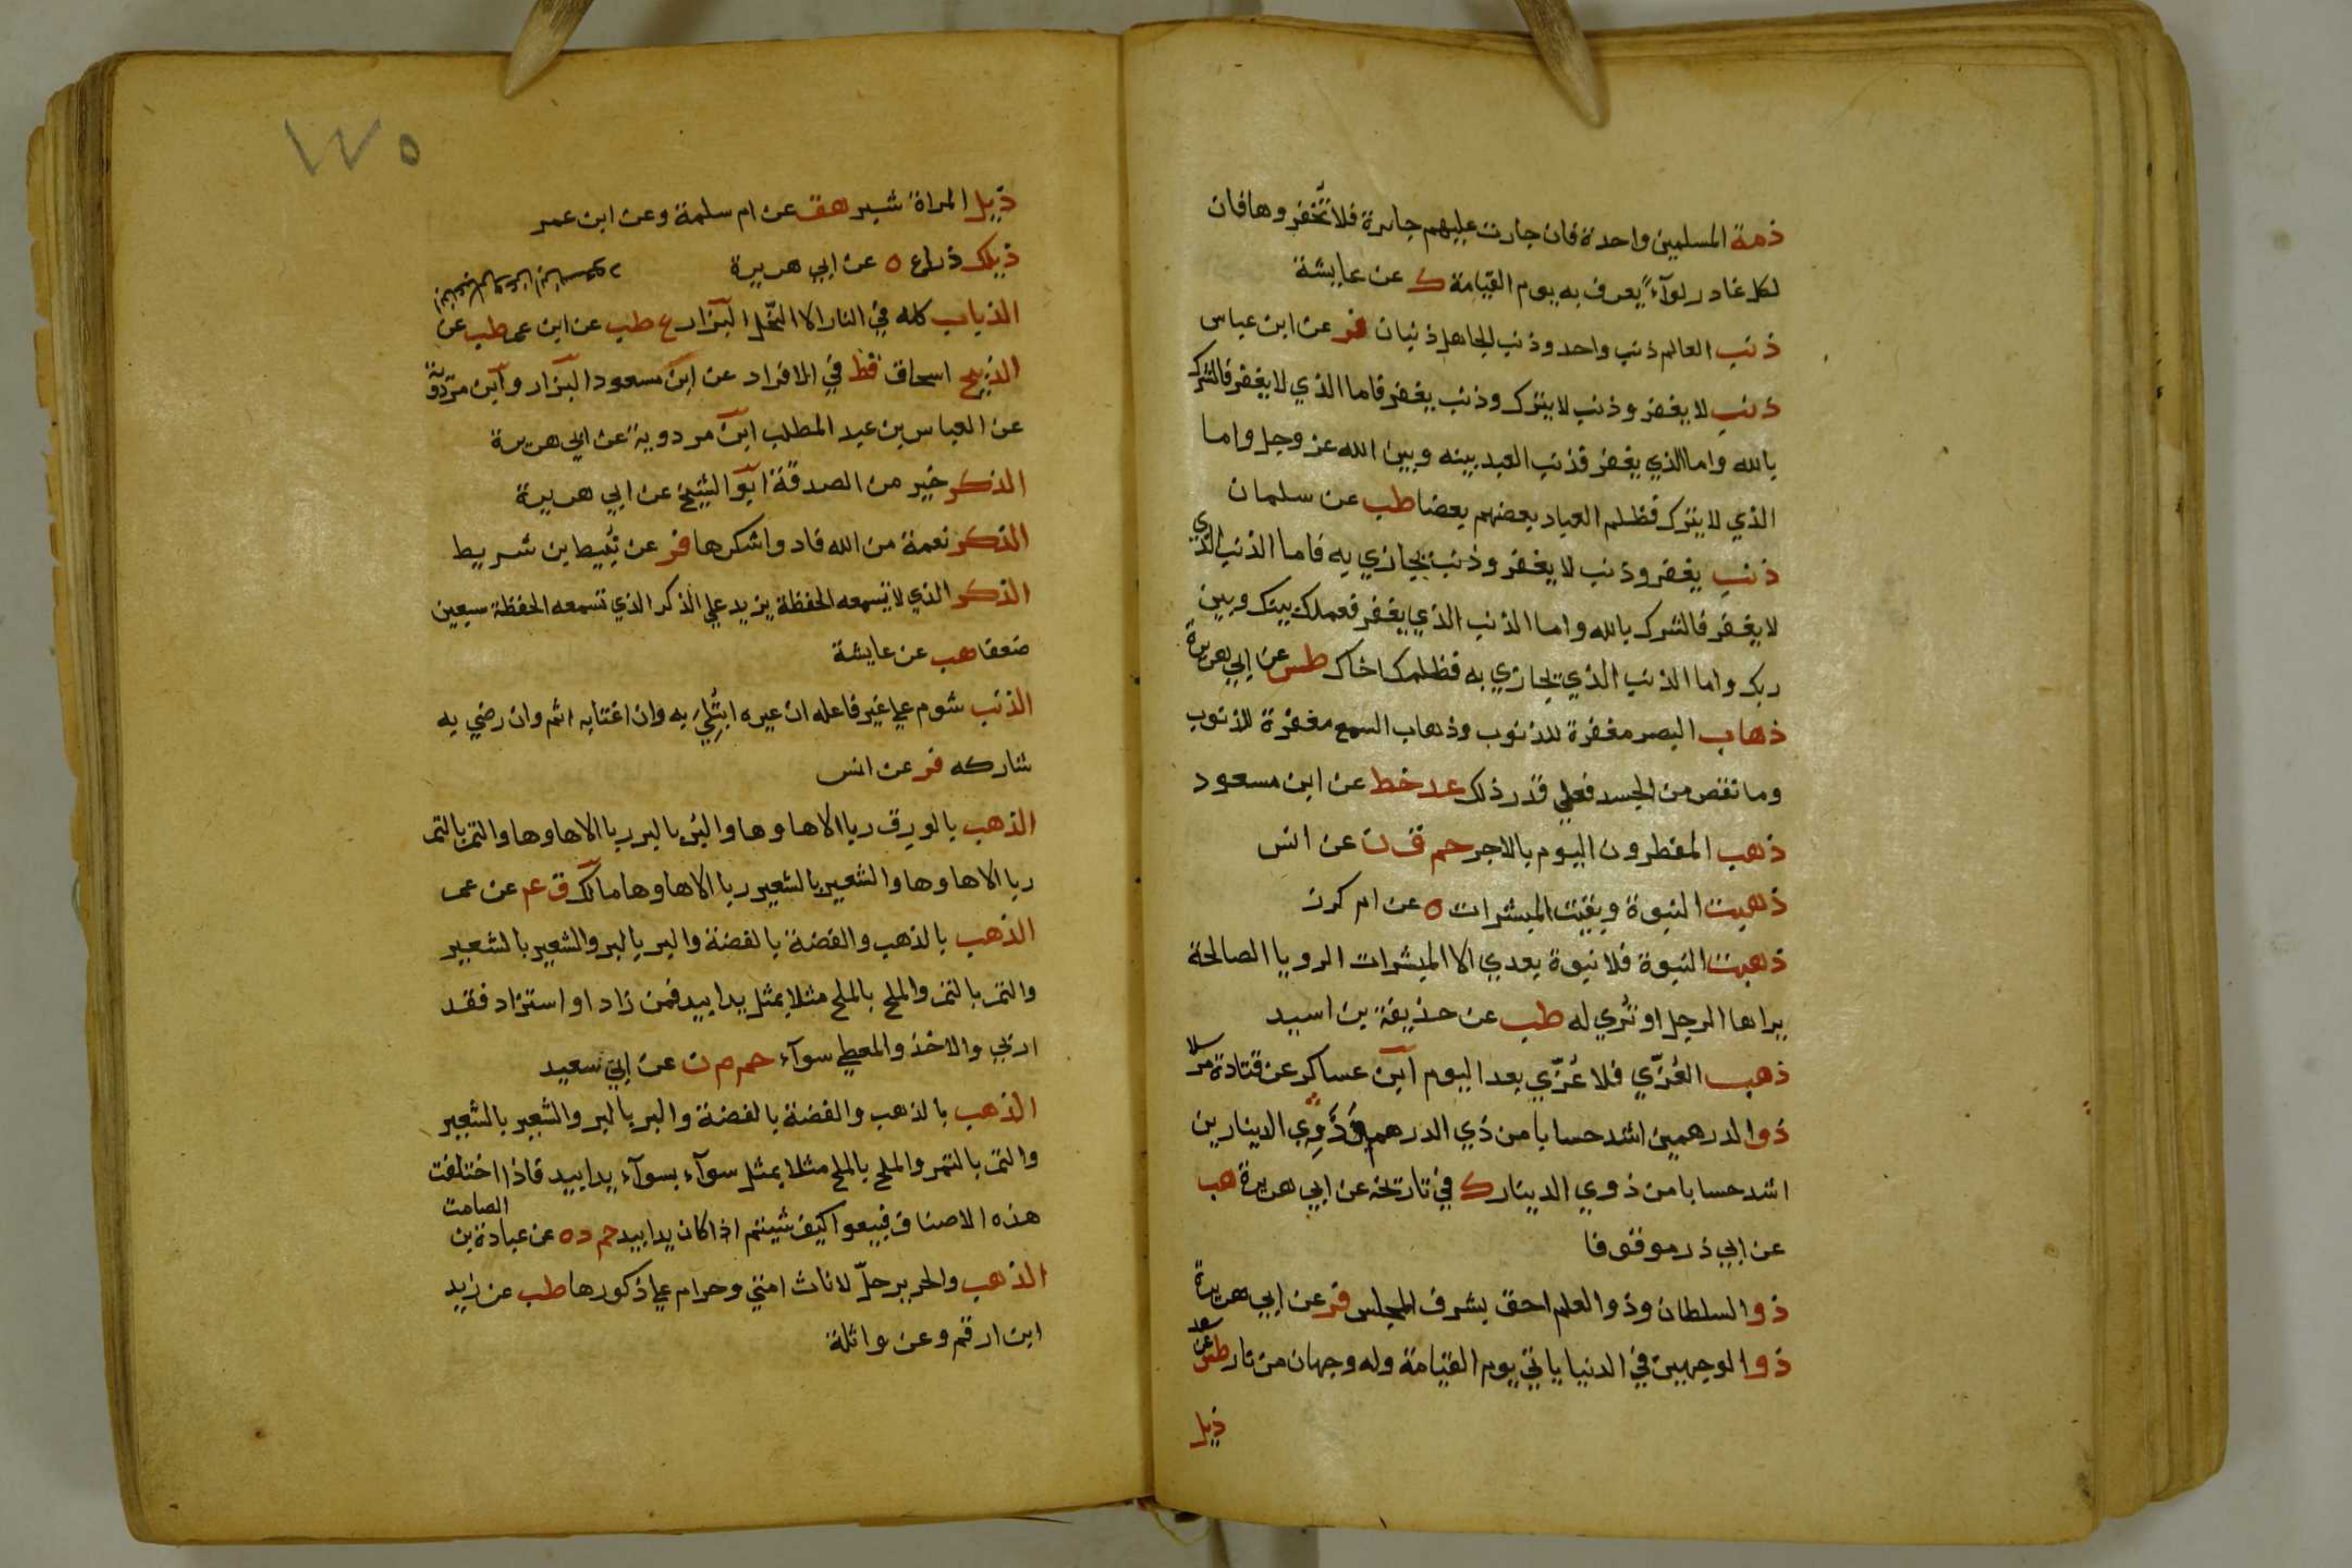 ذمة المسلمين واحدة فان جارت عليهم جايرة فلا تخفروها فان
لكل غادر لوآءً يعرف به يوم القيامة ك عن عايشة
ذنب العالم ذنب واحد وذنب الجاهل ذنبان فر عن ابن عباس
ذنب لا يغفر وذنب لا يترك وذنب يغفر فاما الذي لا يغفر فالشرك
بالله واما الذي يغفر فذنب العبد بينه وبين الله عز وجل واما
الذي لا يترك فظلم العباد بعضهم بعضا طب عن سلمان
ذنب يغفر وذنب لا يغفر وذنب يجازي به فاما الذنب الذي
لا يغفر فالشرك بالله واما الذنب الذي يغفر فعملك بينك وبين
ربك واما الذنب الذي يجازي به فظلمك اخاك طس عن ابي هريرة
ذهاب البصر مغفرة للذنوب وذهاب السمع مغفرة للذنوب
وما نقص من الجسد فعلي قدر ذلك عد خط عن ابن مسعود
ذهب المفطرون اليوم بالاجر حم ق ن عن انس
ذهبت النبوة وبقيت المبشرات ه عن ام كرز
ذهبت النبوة فلا نبوة بعدي الا المبشرات الرويا الصالحة
يراها الرجل او تُري له طب عن حذيفة بن اسيد
ذهب العُزّي فلا عُزّي بعد اليوم ابن عساكر عن قتادة مرسلا
ذوا لدرهمين اشد حسابا من ذي الدرهم وذوي الدينارين
اشد حسابا من ذوي الدينار ك في تاريخه عن ابي هريرة هب
عن ابي ذر موقوفا
ذو السلطان وذو العلم احق بشرف المجلس فر عن ابي هريرة
ذوا لوجهين في الدنيا ياتي يوم القيامة وله وجهان من نار طس عن سعد
ذيل
١٧٥
ذيل المراة شبر هق عن ام سلمة وعن ابن عمر
ذيلك ذراع ه عن ابي هريرة
الذباب كله في النار الا النحل البزار ع طب عن ابن عمر طب عن
الذبيح اسحاق قط في الافراد عن ابن مسعود البزار وابن مردوية
عن العباس بن عبد المطلب ابن مردوية عن ابي هريرة
الذكر خير من الصدقة ابو الشيخ عن ابي هريرة
الذكر نعمة من الله فادوا شكرها فر عن نُبيط بن شريط
الذكر الذي لا تسمعه الحفظة يزيد علي الذكر الذي تسمعه الحفظة سبعين
ضعفا هب عن عايشة
الذنب شوم علي غير فاعله ان عيره ابتُلِيَ به وان اغتابه اثم وان رضي به
شاركه فر عن انس
الذهب بالورق ربا الا ها وها والبر بالبر ربا الا ها وها والتمر بالتمر
ربا الا ها وها والشعير بالشعير ربا الا ها وها مالك ق عم عن عمر
الذهب بالذهب والفضة بالفضة والبر بالبر والشعير بالشعير
والتمر بالتمر والملح بالملح مثلا بمثل يدا بيد فمن زاد او استزاد فقد
اربي والاخذ والمعطي سوآء حم م ن عن ابي سعيد
الذهب بالذهب والفضة بالفضة والبر بالبر والشعير بالشعير
والتمر بالتمر والملح بالملح مثلا بمثل سوآء بسوآء يدا بيد فاذا اختلفت
هذه الاصناف فبيعوا كيف شيتم اذا كان يدا بيد حم د ه عن عبادة بن الصامت
الذهب والحرير حلّ لاناث امتي وحرام علي ذكورها طب عن زيد
ابن ارقم وعن واثلة